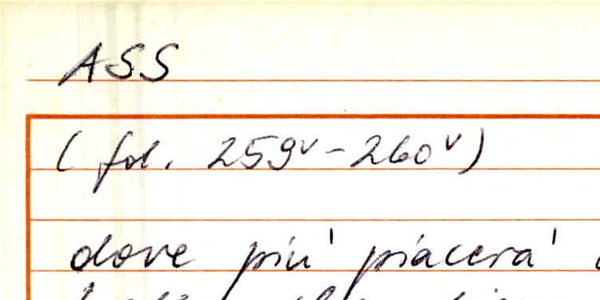 ASS
(fol. 259v-260v)
dove più piacerà